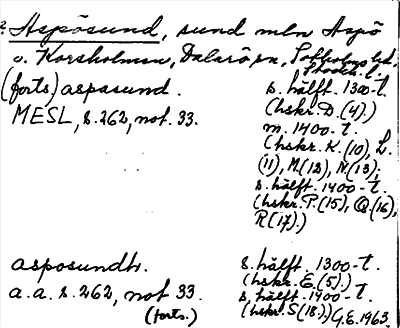 2. Aspösund, sund mln Aspö
o. Korsholmen, Dalarö sn, Sotholms hd.
Stockh. l.
(forts) aspasund. s. hälft. 1300-t.
(hskr. D. (4).)
MESL, s. 262, not. 33. m. 1400-t.
(hskr. K. (10), L.
(11), M. (12), N. (13);
s. hälft. 1400-t.
(hskr. P. (15), Q. (16),
R (17).)
asposundh. s. hälft. 1300-t.
(hskr. E. (5).)
a.a. s. 262, not 33. s. hälft. 1400-t.
(forts.) (hskr. S (18).) G.E. 1963.